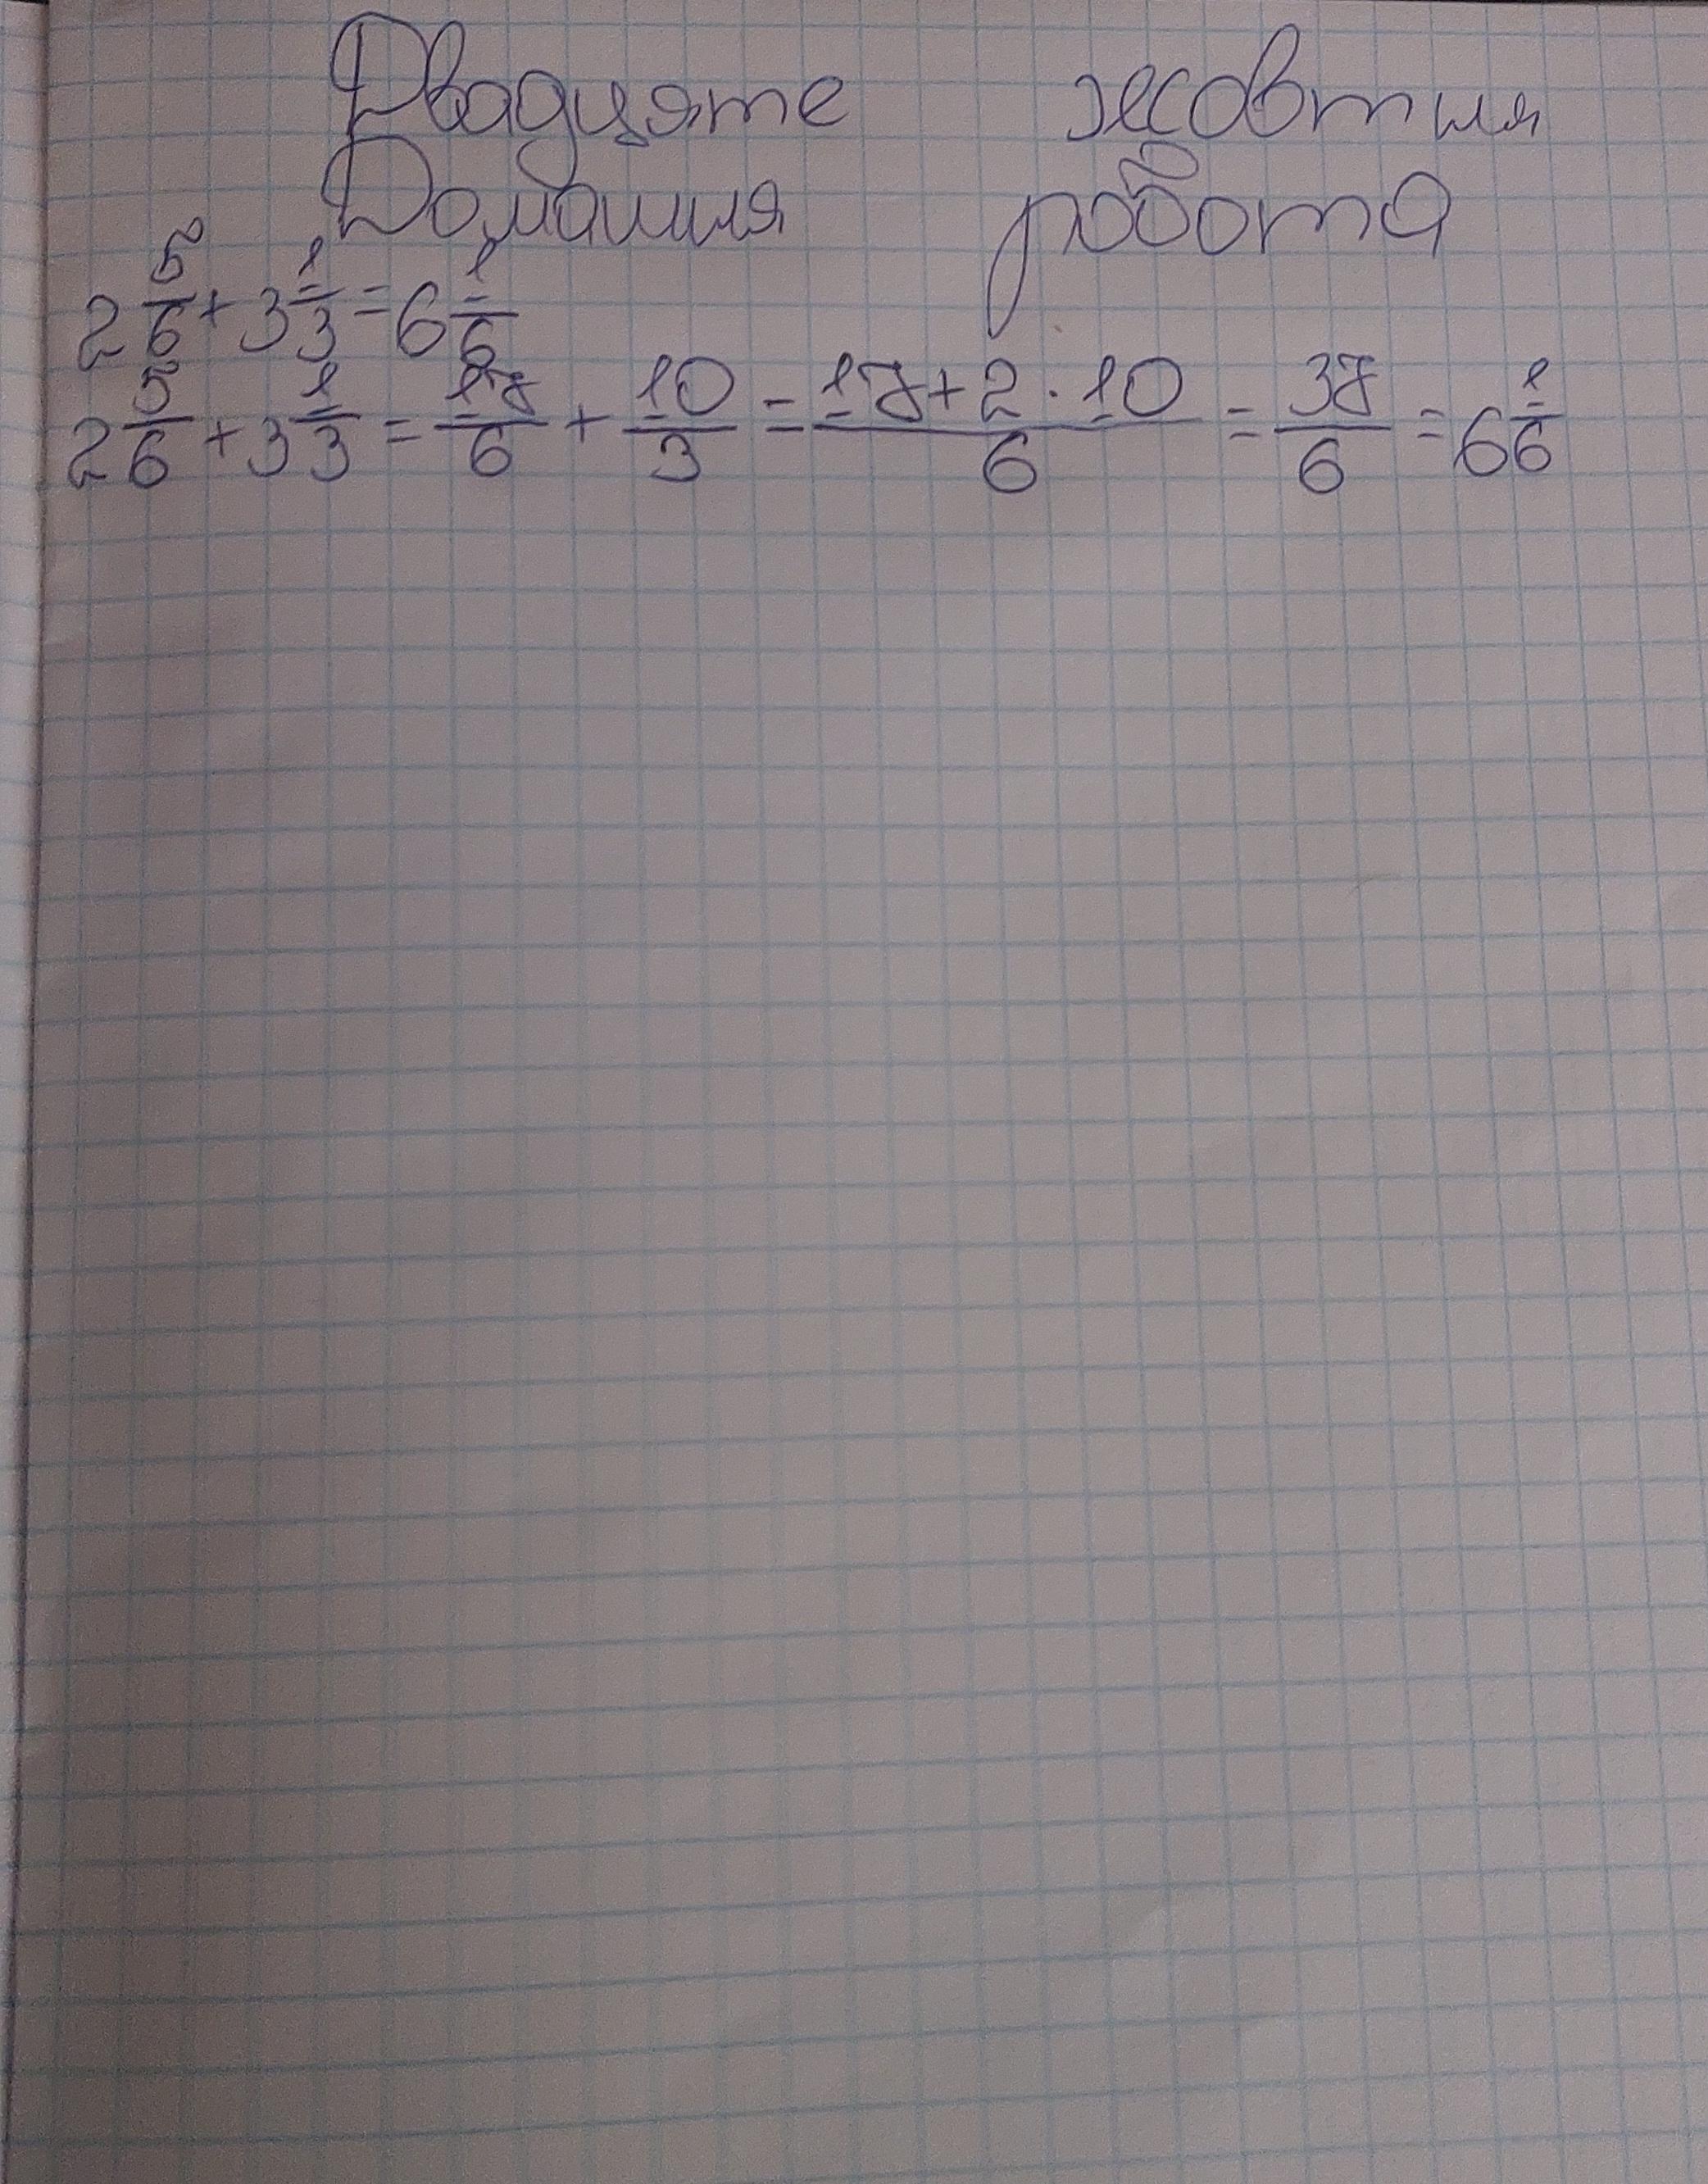 Двадцяте жовтня
Домашня робота
2 5/6 + 3 1/3 = 6 1/6
2 5/6 + 3 1/3 = 17/6 + 10/3 = (17 + 2 · 10)/6 = 37/6 = 6 1/6